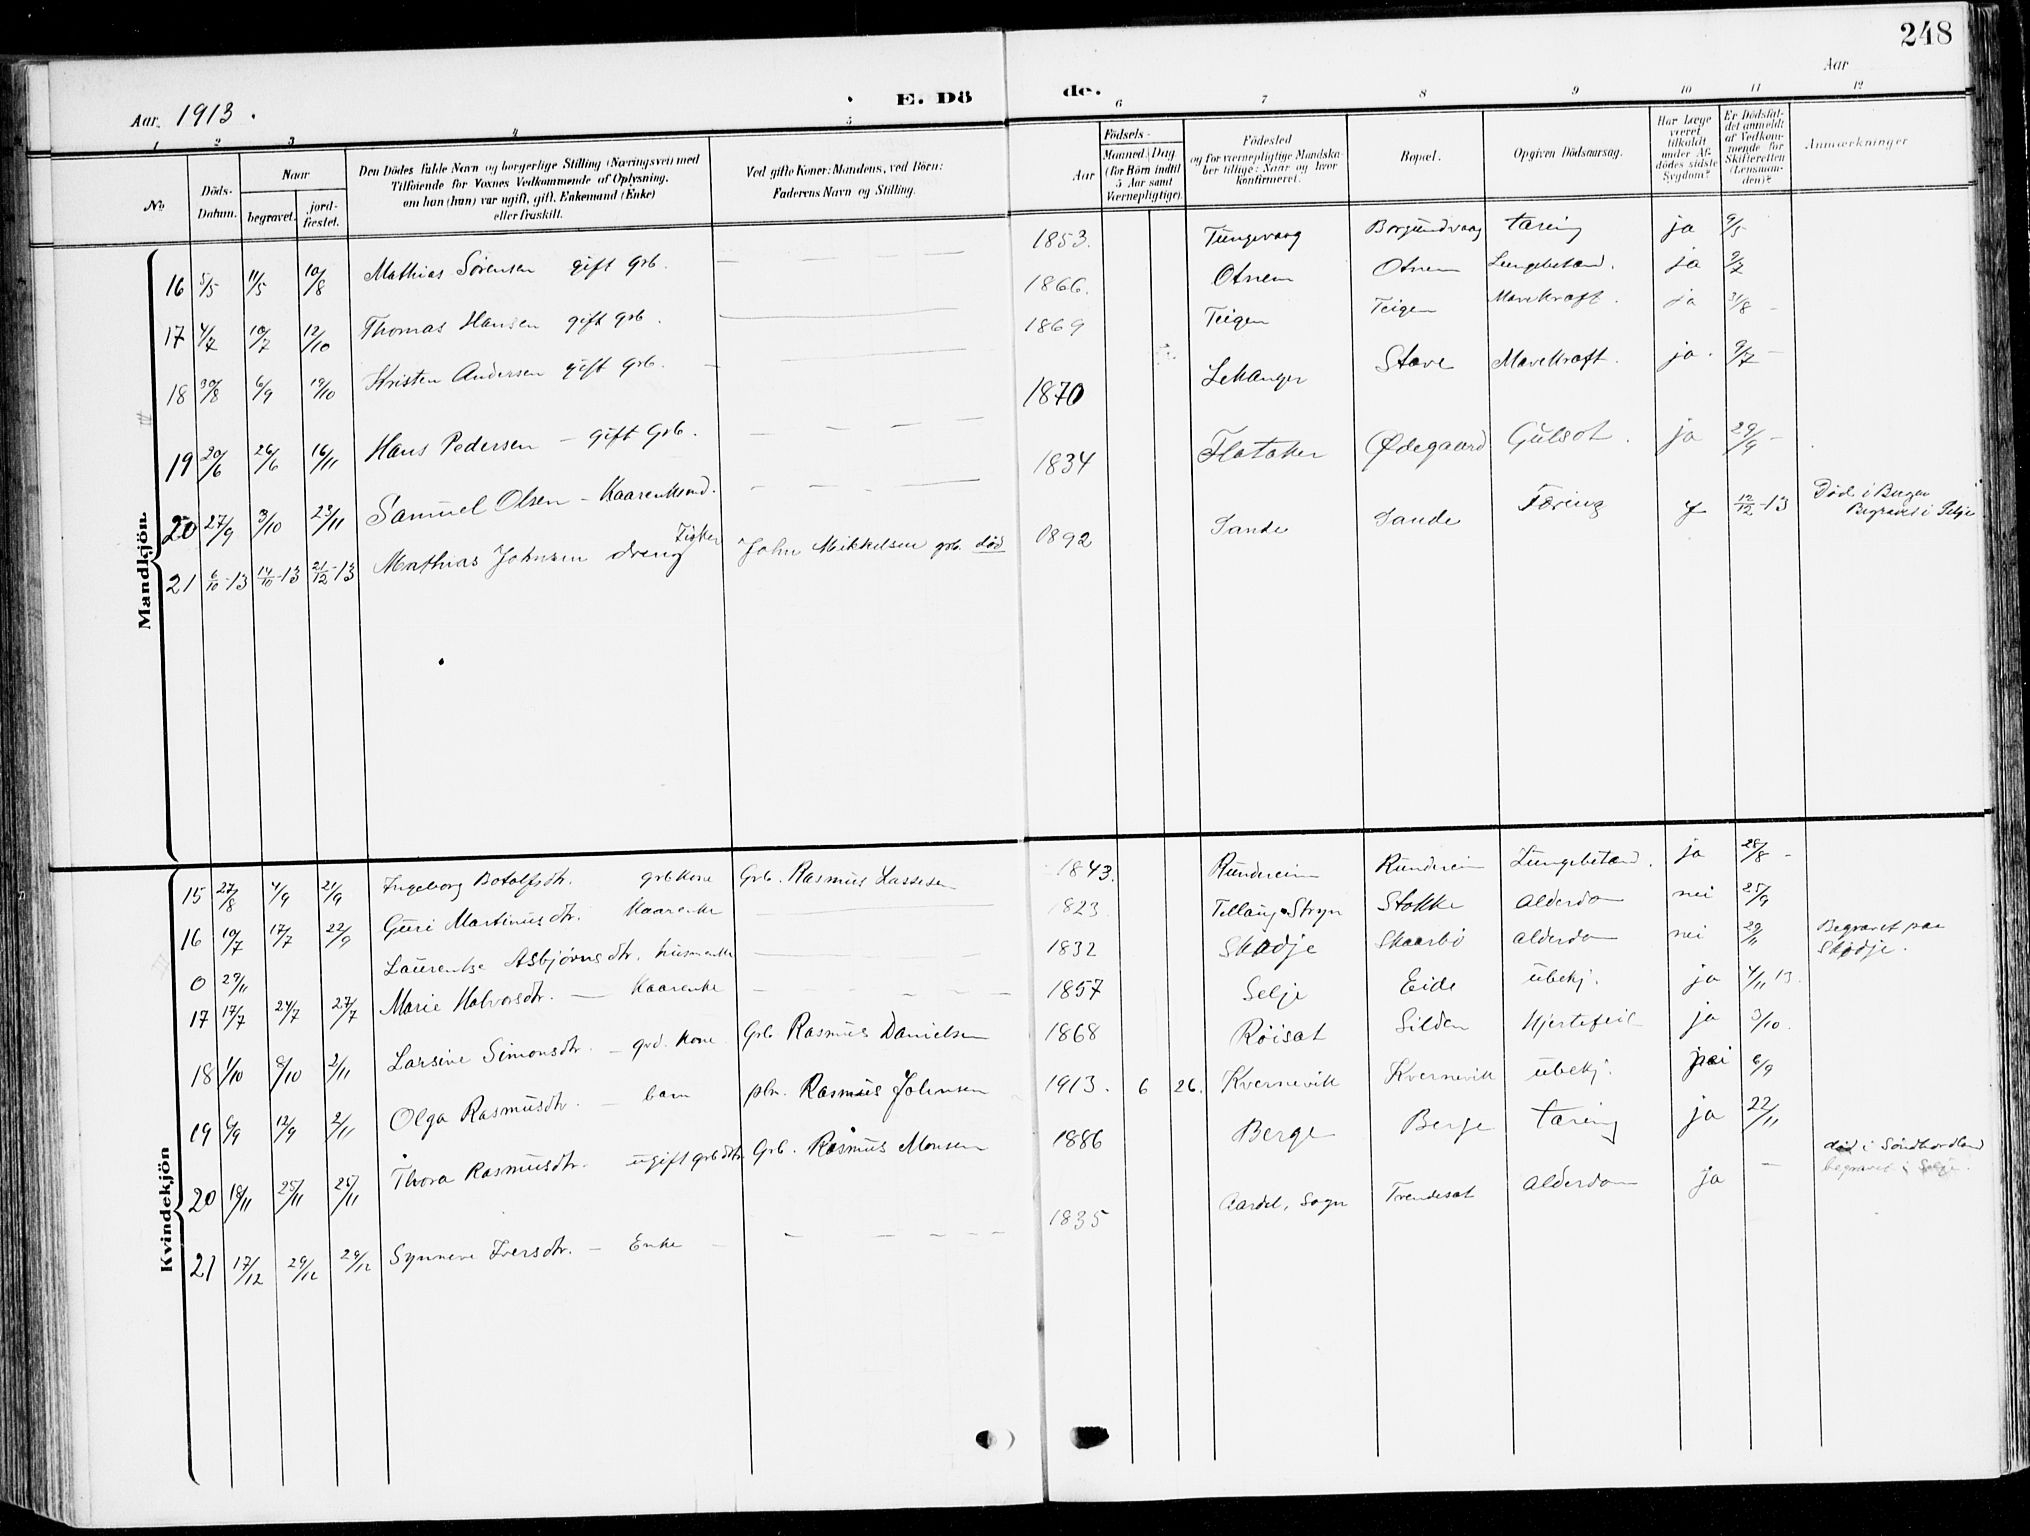 248
Aar 1913.
E. Dö de.
Aar
1 2 3 4 5 6 7 8 9 10 11 12
No
Döds-Datum.
Naar
begravet.
jord-fæstet.
Den Dödes fulde Navn og borgerlige Stilling (Næringsvei) med
Tilföiende for Voxnes Vedkommende af Oplysning,
om han (hun) var ugift, gift, Enkemand (Enke)
eller fraskilt.
Ved gifte Koner: Mandens, ved Börn:
Faderens Navn og Stilling.
Födsels-
Aar
Maaned. Dag
(for Börn indtil
5 Aar samt
Værnepligtige).
Födested
og for værnepligtige Mandska-
ber tillige: Naar og hvor
konfirmeret.
Bopæl.
Opgiven Dödsaarsag.
Har Læge
været
tilkaldt
under Af-
dödes sidste
Sygdom?
Er Dödsfal-
det anmeldt
af Vedkom-
mende for
Skifteretten
(Lensman-
den)?
Anmærkninger
Mandkjön.
16 5/5 11/5 10/8 Mathias Sørensen gift grb. 1853. Tungevaag Borgundvaag tæring ja 9/5
17 4/7 10/7 12/10 Thomas Hansen gift grb. 1866. Otnem Otnem Lungebetænd. ja 9/7
18 30/8 6/9 19/10 Kristen Andersen gift grb. 1869 Teigen Teigen Mavekræft. ja 31/8 -
19 20/6 26/6 16/11 Hans Pedersen - gift Grb. 1870 Lekanger Stave Mavekræft. ja. 9/7 -
20 27/9 3/10 23/11 Samuel Olsen - Kaarenkemd. 1834 Flataker Ødegaard Gulsot. ja 29/9 -
21 6/10-13 14/10-13 21/12-13 Mathias Johnsen dreng Fisker John Mikkelsen grb. død 1892 Sande Sande Tæring 12/12-13 Død i Bergen Begravet i Selje
Kvindekjön
15 27/8 4/9 21/9 Ingeborg Botolfsdtr. grb kone Grb. Rasmus Lassesen 1843. Rundereim Rundereim Lungebetænd. ja 28/8 -
16 10/7 17/7 22/9 Guri Martinusdtr. Kaarenke 1823 Stryn Stokke Alderdom nei 25/9
0 29/11 Laurentse Asbjørnsdtr. husmenke 1832 Skodje Skaarbø Alderdom nei 29/11 Begravet paa Skodje.
17 17/7 24/7 27/7 Marie Halvorsdtr. - Kaarenke 1857 Selje Eide ubekj. ja 4/11 13.
18 1/10 8/10 2/11 Larsine Simonsdtr. - grd. kone Grb Rasmus Danielsen 1868 Røisæt Silden Hjertefeil ja 3/10.
19 6/9 12/9 2/11 Olga Rasmusdtr. - barn pln. Rasmus Johnsen 1913. 6 26. Kvernevik Kvernevik ubekj. nei 6/9
20 18/11 25/11 25/11 Thora Rasmusdtr. ugift grb dtr. Grb. Rasmus Monsen 1886 Berge Berge tæring ja 22/11
21 17/12 29/12 29/12 Synneve Iversdtr. - Enke - 1835 Aardal, Sogn Trendesæt Alderdom ja - død i Søndhordland begravet i Selje.